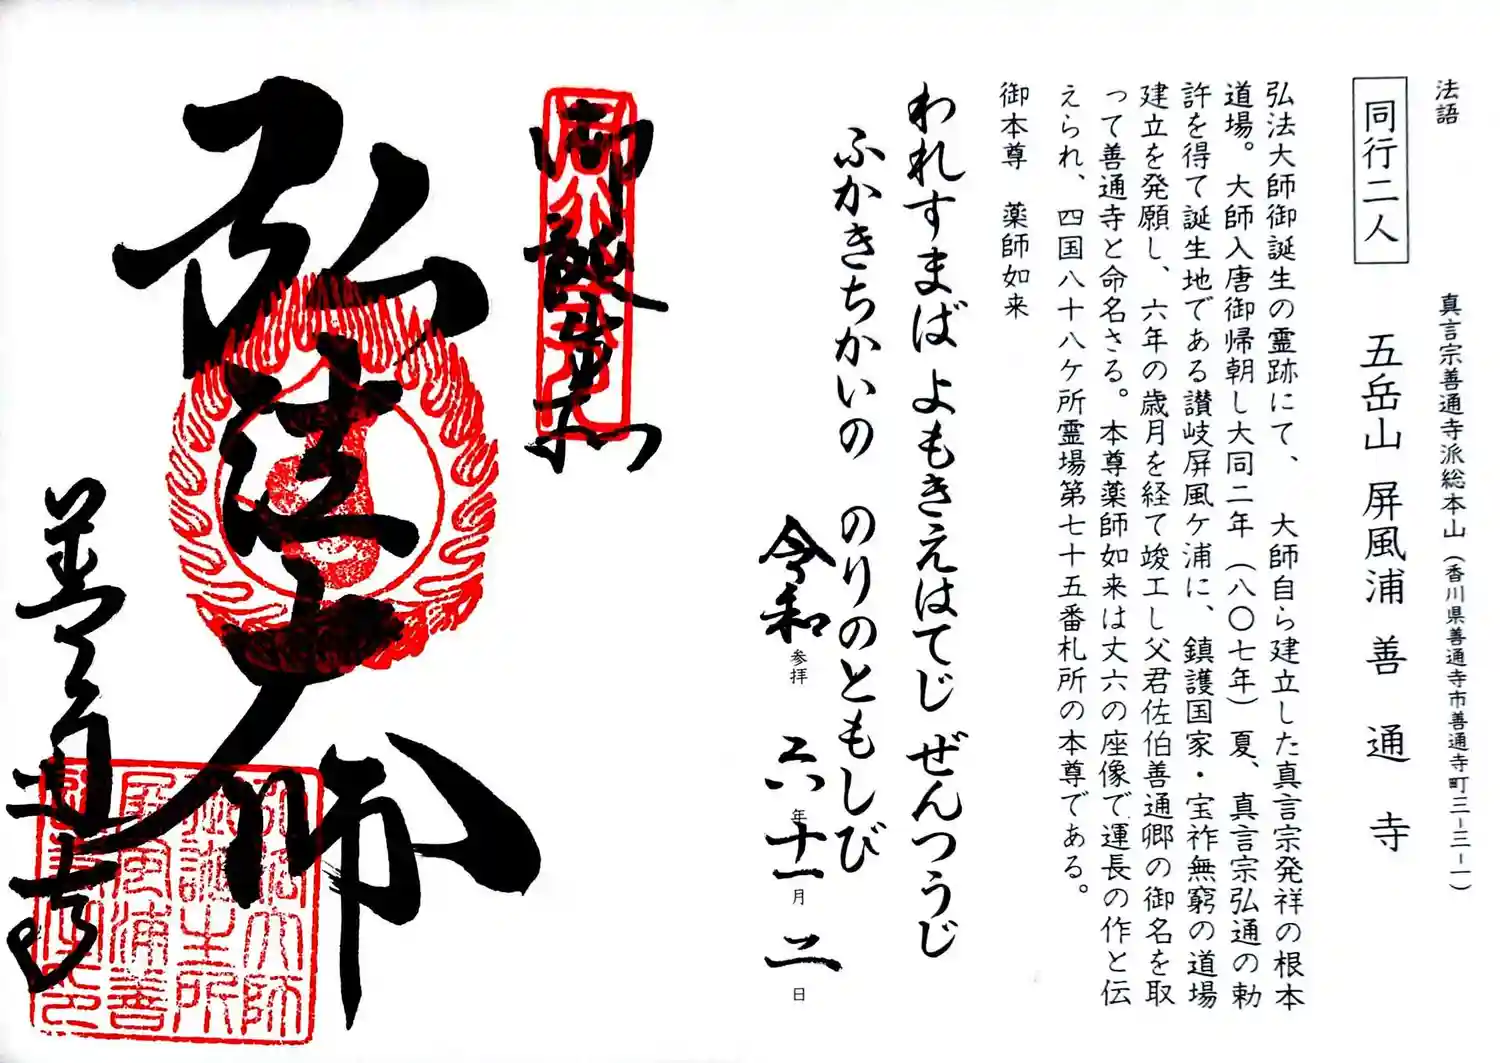 法語
真言宗善通寺派総本山（香川県善通寺市善通寺町三ー三ー一）
同行二人
五岳山 屏風浦 善通寺
弘法大師御誕生の霊跡にて、 大師自ら建立した真言宗発祥の根本
道場。大師入唐御帰朝し大同二年（八〇七年）夏、真言宗弘通の勅
許を得て誕生地である讃岐屏風ケ浦に、鎮護国家・宝祚無窮の道場
建立を発願し、六年の歳月を経て竣工し父君佐伯善通卿の御名を取
って善通寺と命名さる。本尊薬師如来は丈六の座像で運長の作と伝
えられ、四国八十八ケ所霊場第七十五番札所の本尊である。
御本尊 薬師如来
われすまば よもきえはてじ ぜんつうじ
ふかきちかいの のりのともしび
令和 参拝 六年 十一月 二日
御誕生所
弘法大師
善通寺
弘法大師
御誕生所
屏風浦善